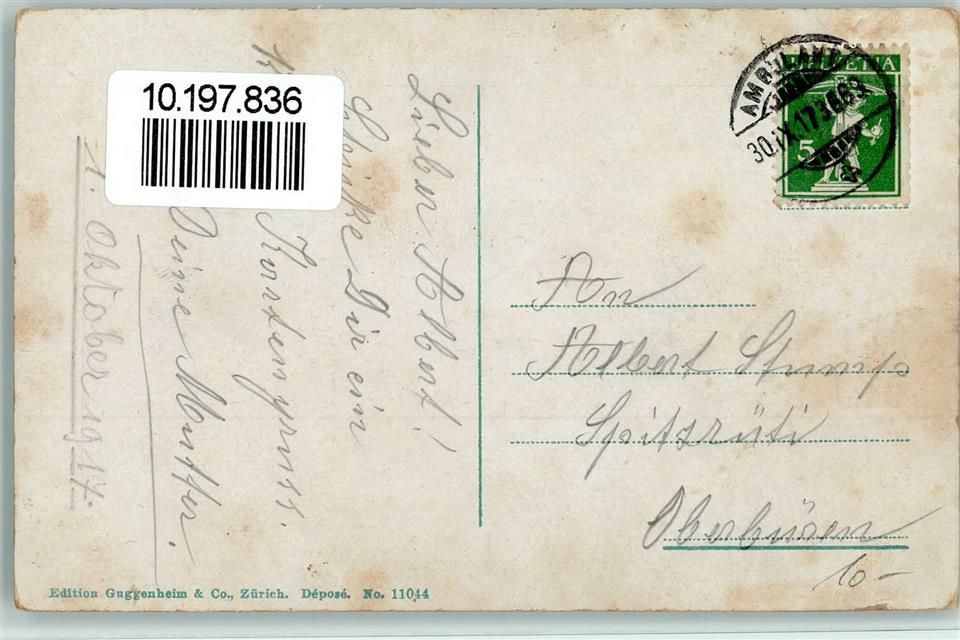 10.197.836
Lieber Albert!
Schicke Dir ein
Kartengruss.
Deine Mutter.
1. Oktober 1917.
HELVETIA
5
AMBULANT
30.IX.17
An
Albert Stump
Spitzrüti
Oberbüren
10-
Edition Guggenheim & Co., Zürich. Déposé. No. 11044